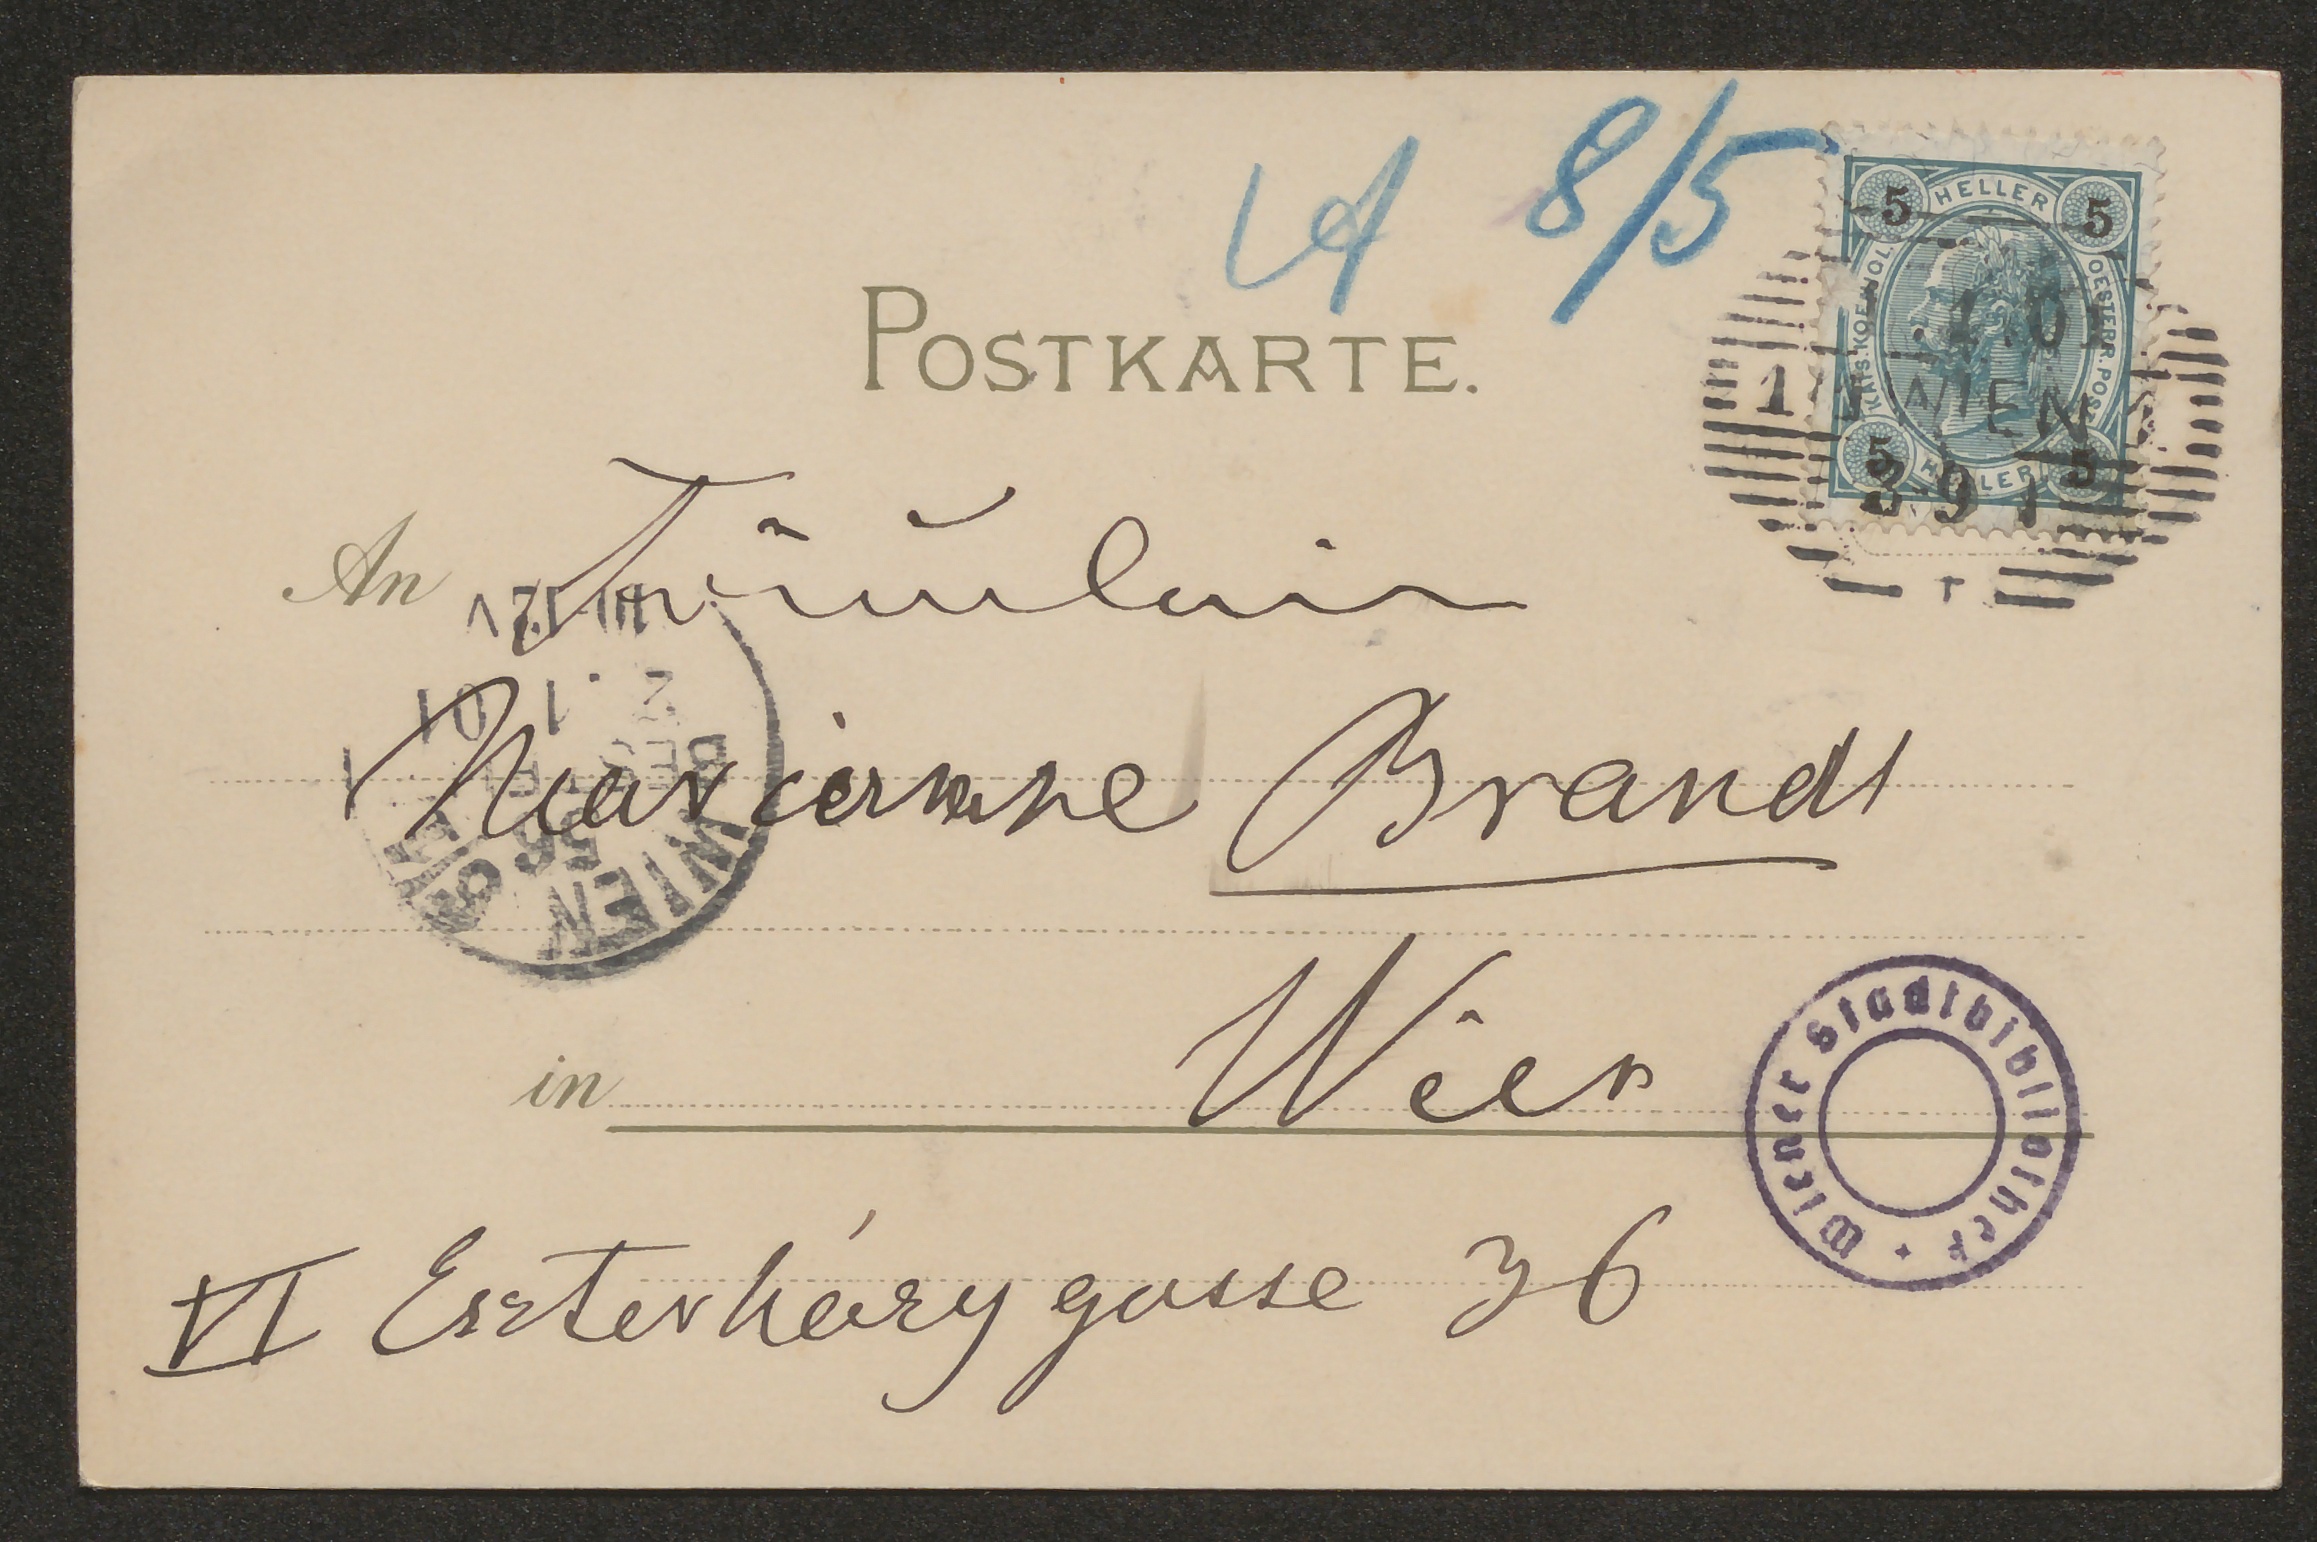 8/5
5 HELLER 5
KAIS. KOENIGL. OESTERR. POST
5 HELLER 5
WIEN
POSTKARTE.
An Fräulein
Marianne Brandt
WIEN
56
BESTELLT
2. 1. 01
in Wien
Wiener Stadtbibliothek
VI Eszterházygasse 36